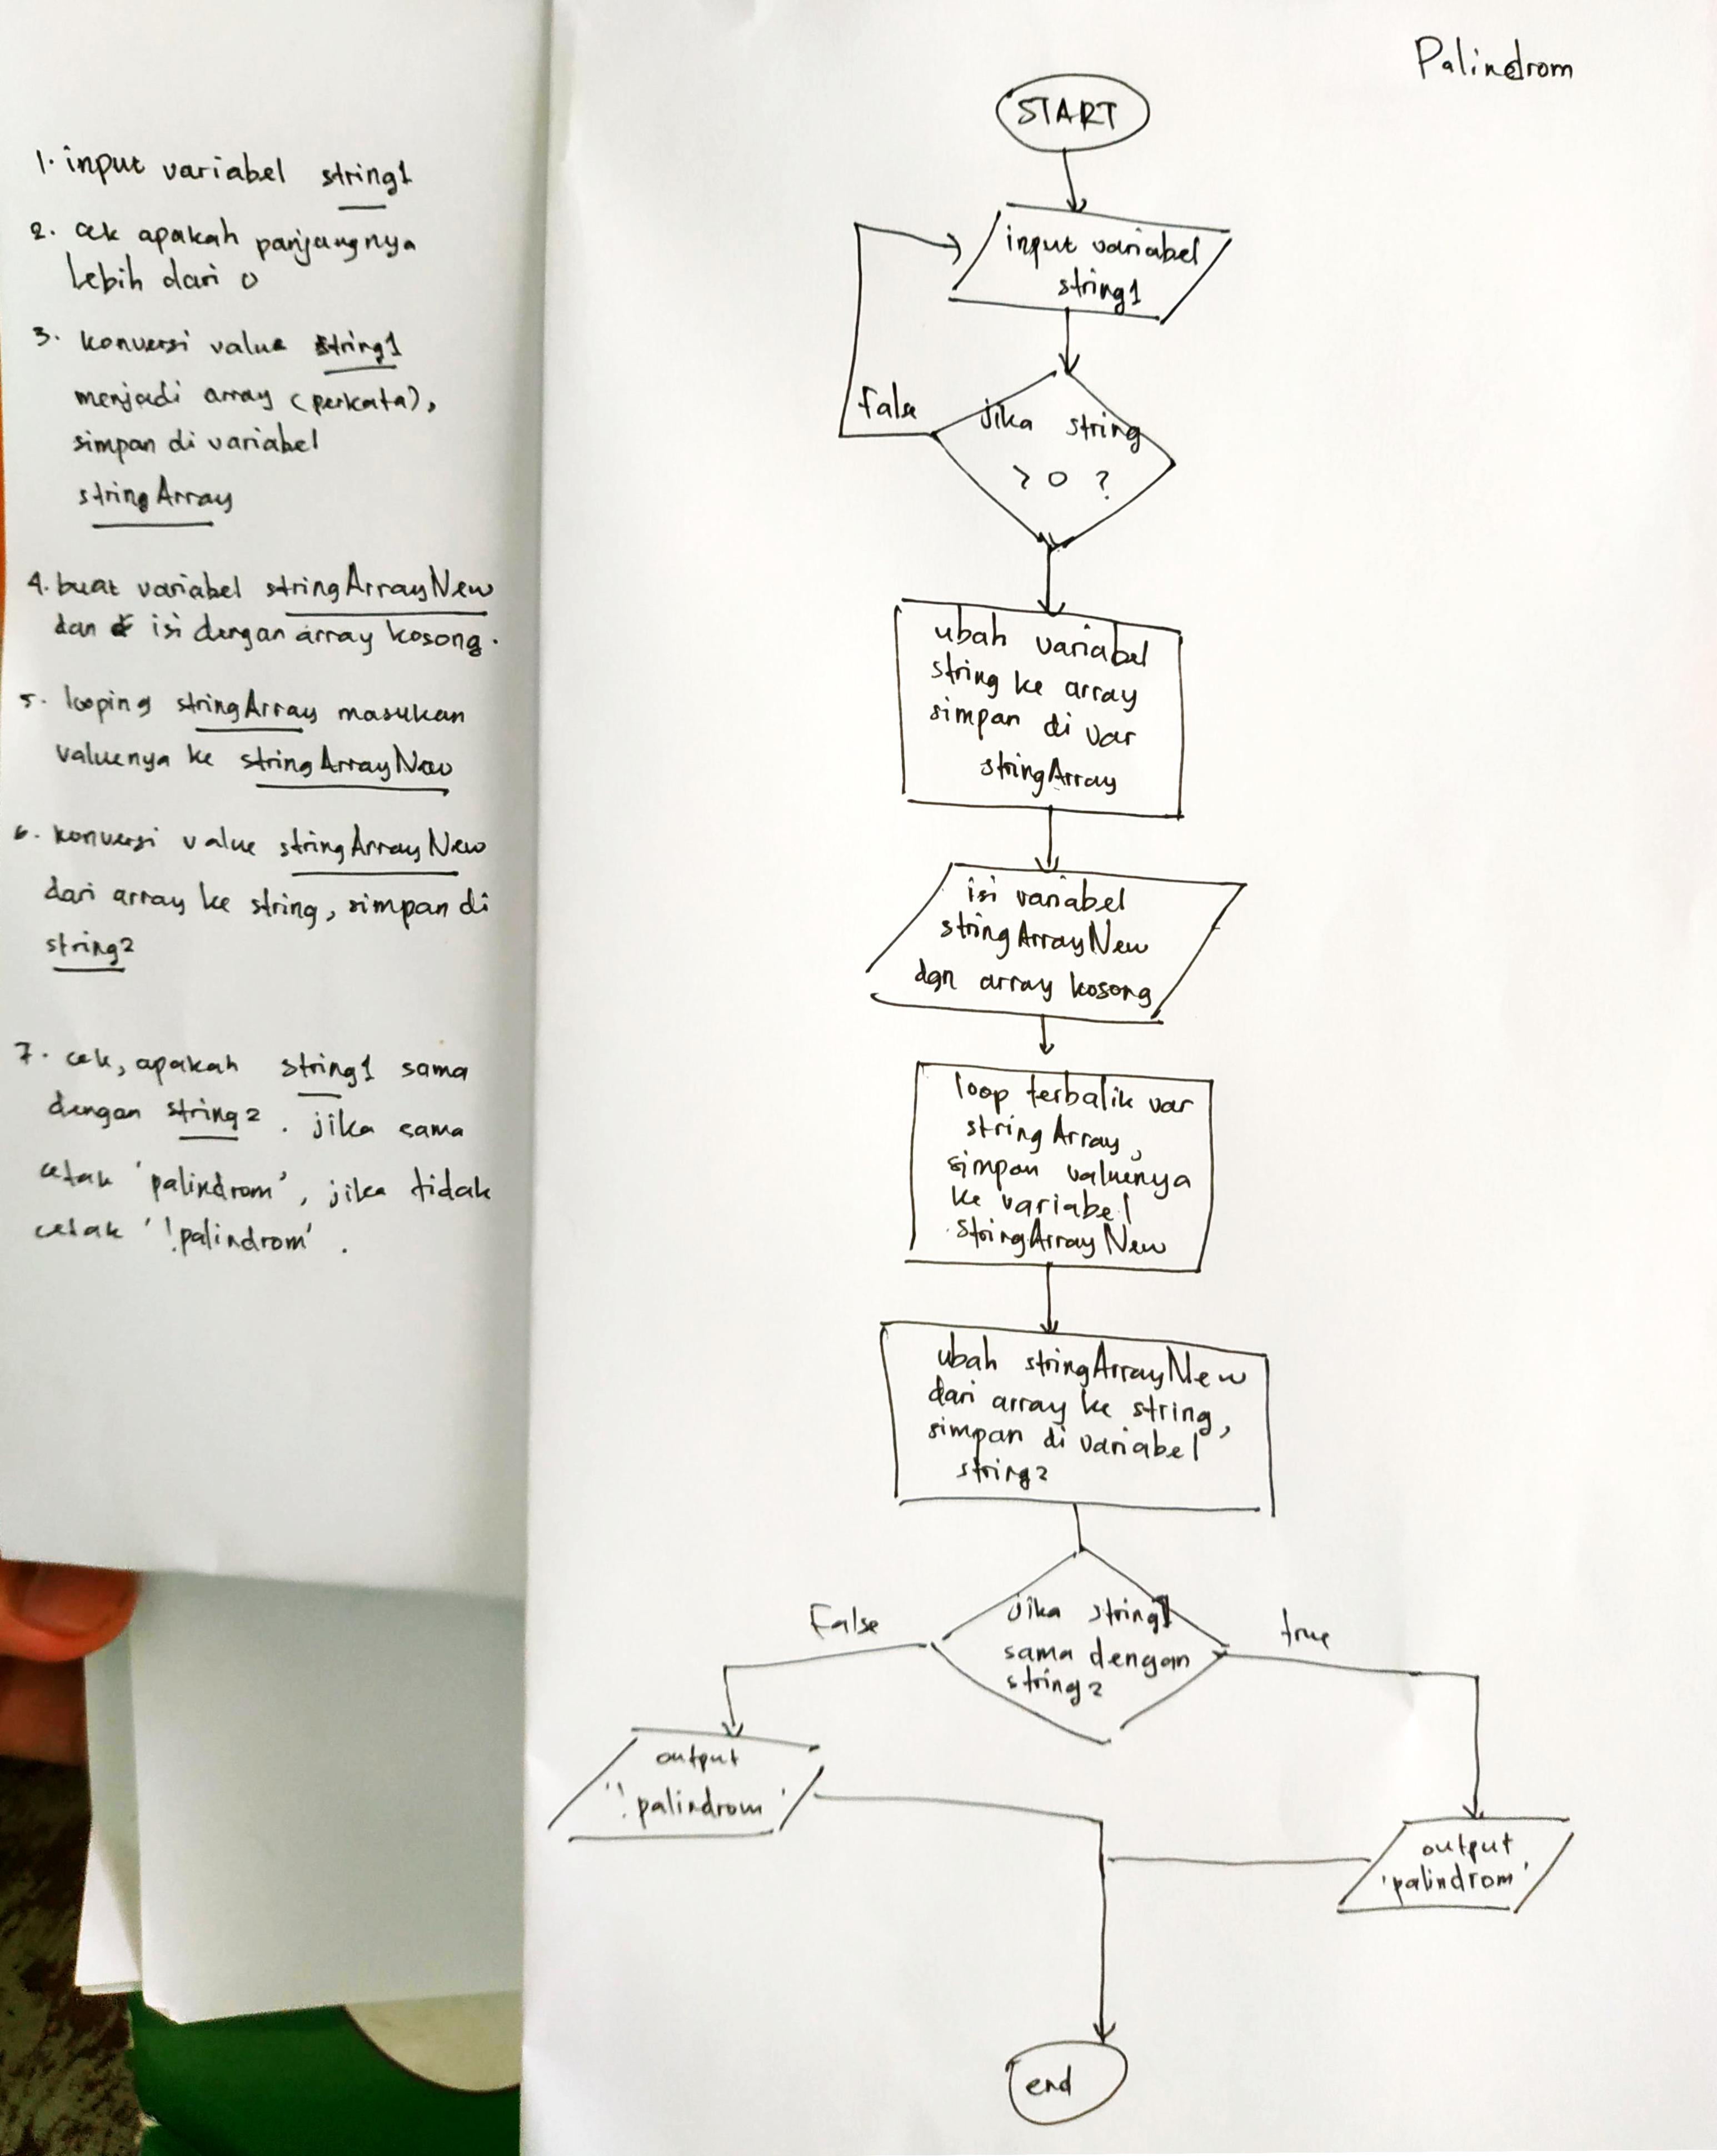 1. input variabel string1
2. cek apakah panjangnya
lebih dari 0
3. konversi value string1
menjadi array (perkata),
simpan di variabel
stringArray
4. buat variabel stringArrayNew
dan isi dengan array kosong.
5. looping stringArray masukan
valuenya ke stringArrayNew
6. konversi value stringArrayNew
dari array ke string, simpan di
string2
7. cek, apakah string1 sama
dengan string2. jika sama
cetak 'palindrom', jika tidak
cetak '!palindrom'.
Palindrom
START
input variabel
string1
False
jika string
> 0 ?
ubah variabel
string ke array
simpan di var
stringArray
isi variabel
stringArrayNew
dgn array kosong
loop terbalik var
stringArray,
simpan valuenya
ke variabel
stringArrayNew
ubah stringArrayNew
dari array ke string,
simpan di variabel
string2
jika string1
sama dengan
string2
False
true
output
'!palindrom'
output
'palindrom'
end